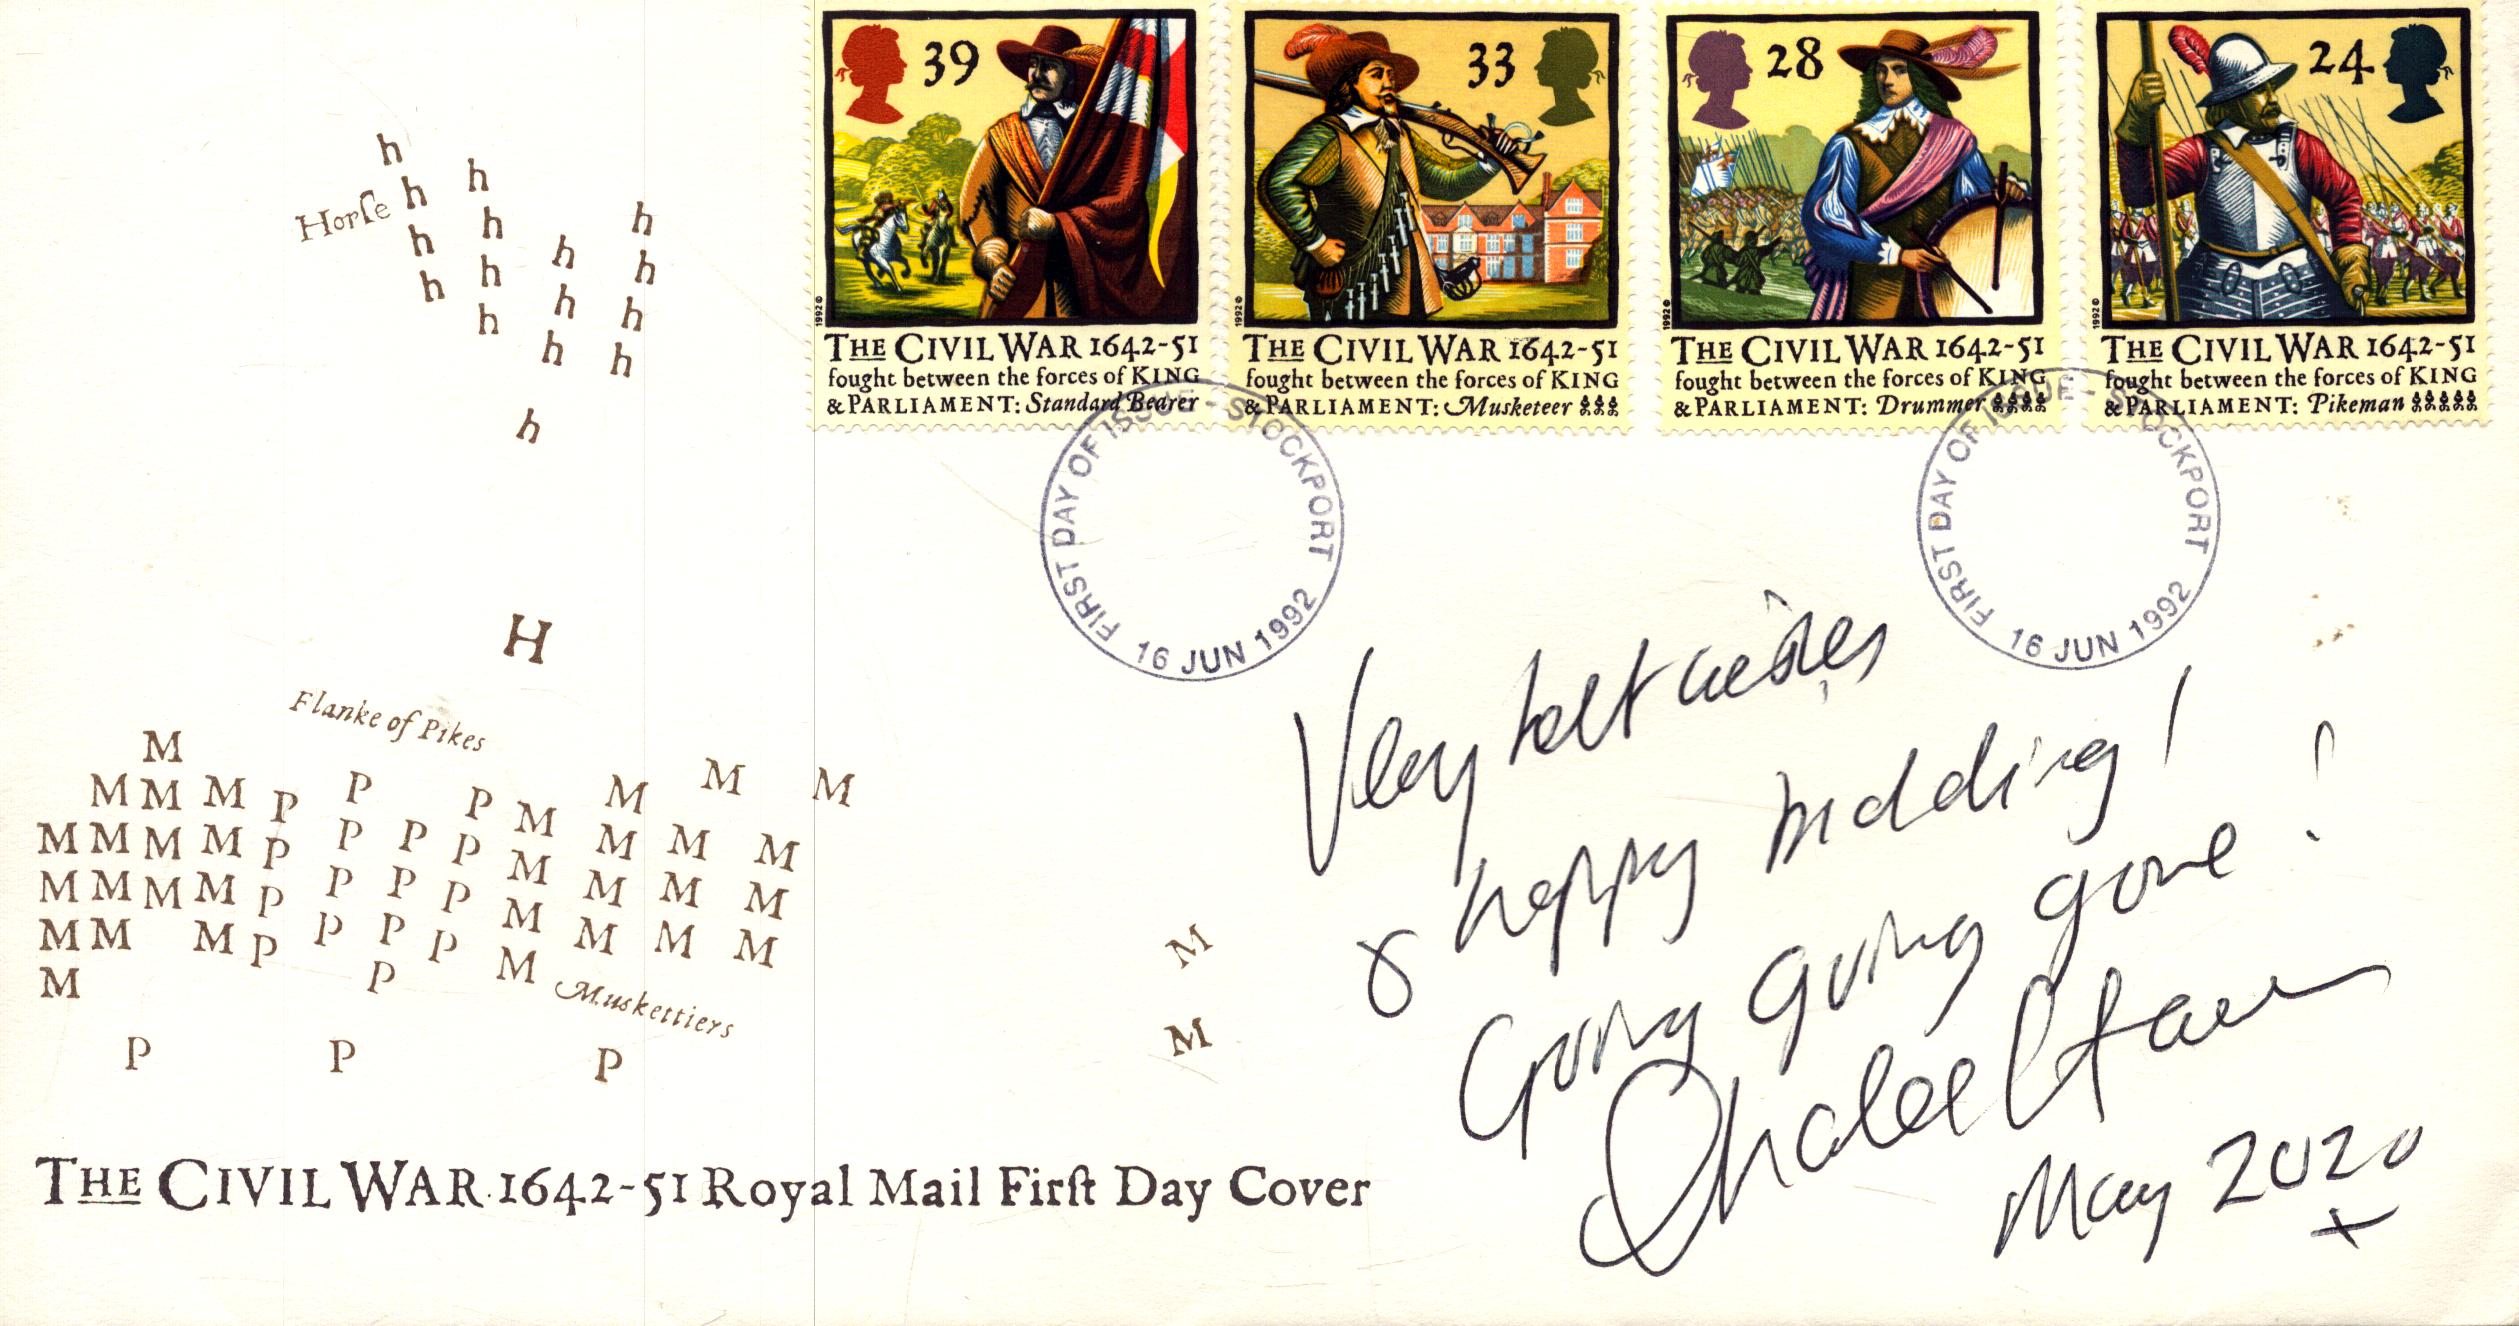 39
1992©
THE CIVIL WAR 1642-51
fought between the forces of KING
& PARLIAMENT: Standard Bearer
33
1992©
THE CIVIL WAR 1642-51
fought between the forces of KING
& PARLIAMENT: Musketeer
28
1992©
THE CIVIL WAR 1642-51
fought between the forces of KING
& PARLIAMENT: Drummer
24
1992©
THE CIVIL WAR 1642-51
fought between the forces of KING
& PARLIAMENT: Pikeman
FIRST DAY OF ISSUE - STOCKPORT
16 JUN 1992
FIRST DAY OF ISSUE - STOCKPORT
16 JUN 1992
h
h h
Horſe h h h
h h h h
h h h h
h h
h
H
Flanke of Pikes
M
M M M P P P M M M M
M M M M P P P P M M M M
M M M M P P P P M M M M
M M M P P P P M M M M
M P M
Muskettiers
P P P
M
M
Very best wishes
& happy bidding!
Going going gone!
May 2020
x
THE CIVIL WAR 1642-51 Royal Mail Firſt Day Cover